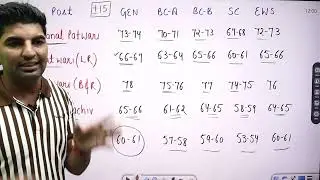 Post +15 GEN BC-A BC-B SC EWS
onal Patwari 73-74 70-71 72-73 67-68 72-73
twari (L.R) 66-67 63-64 65-66 60-61 65-66
wari (B&R) 78 75-76 77 74-75 76
achiv 65-66 61-62 64-65 58-59 64-65
60-61 57-58 59-60 53-54 60-61